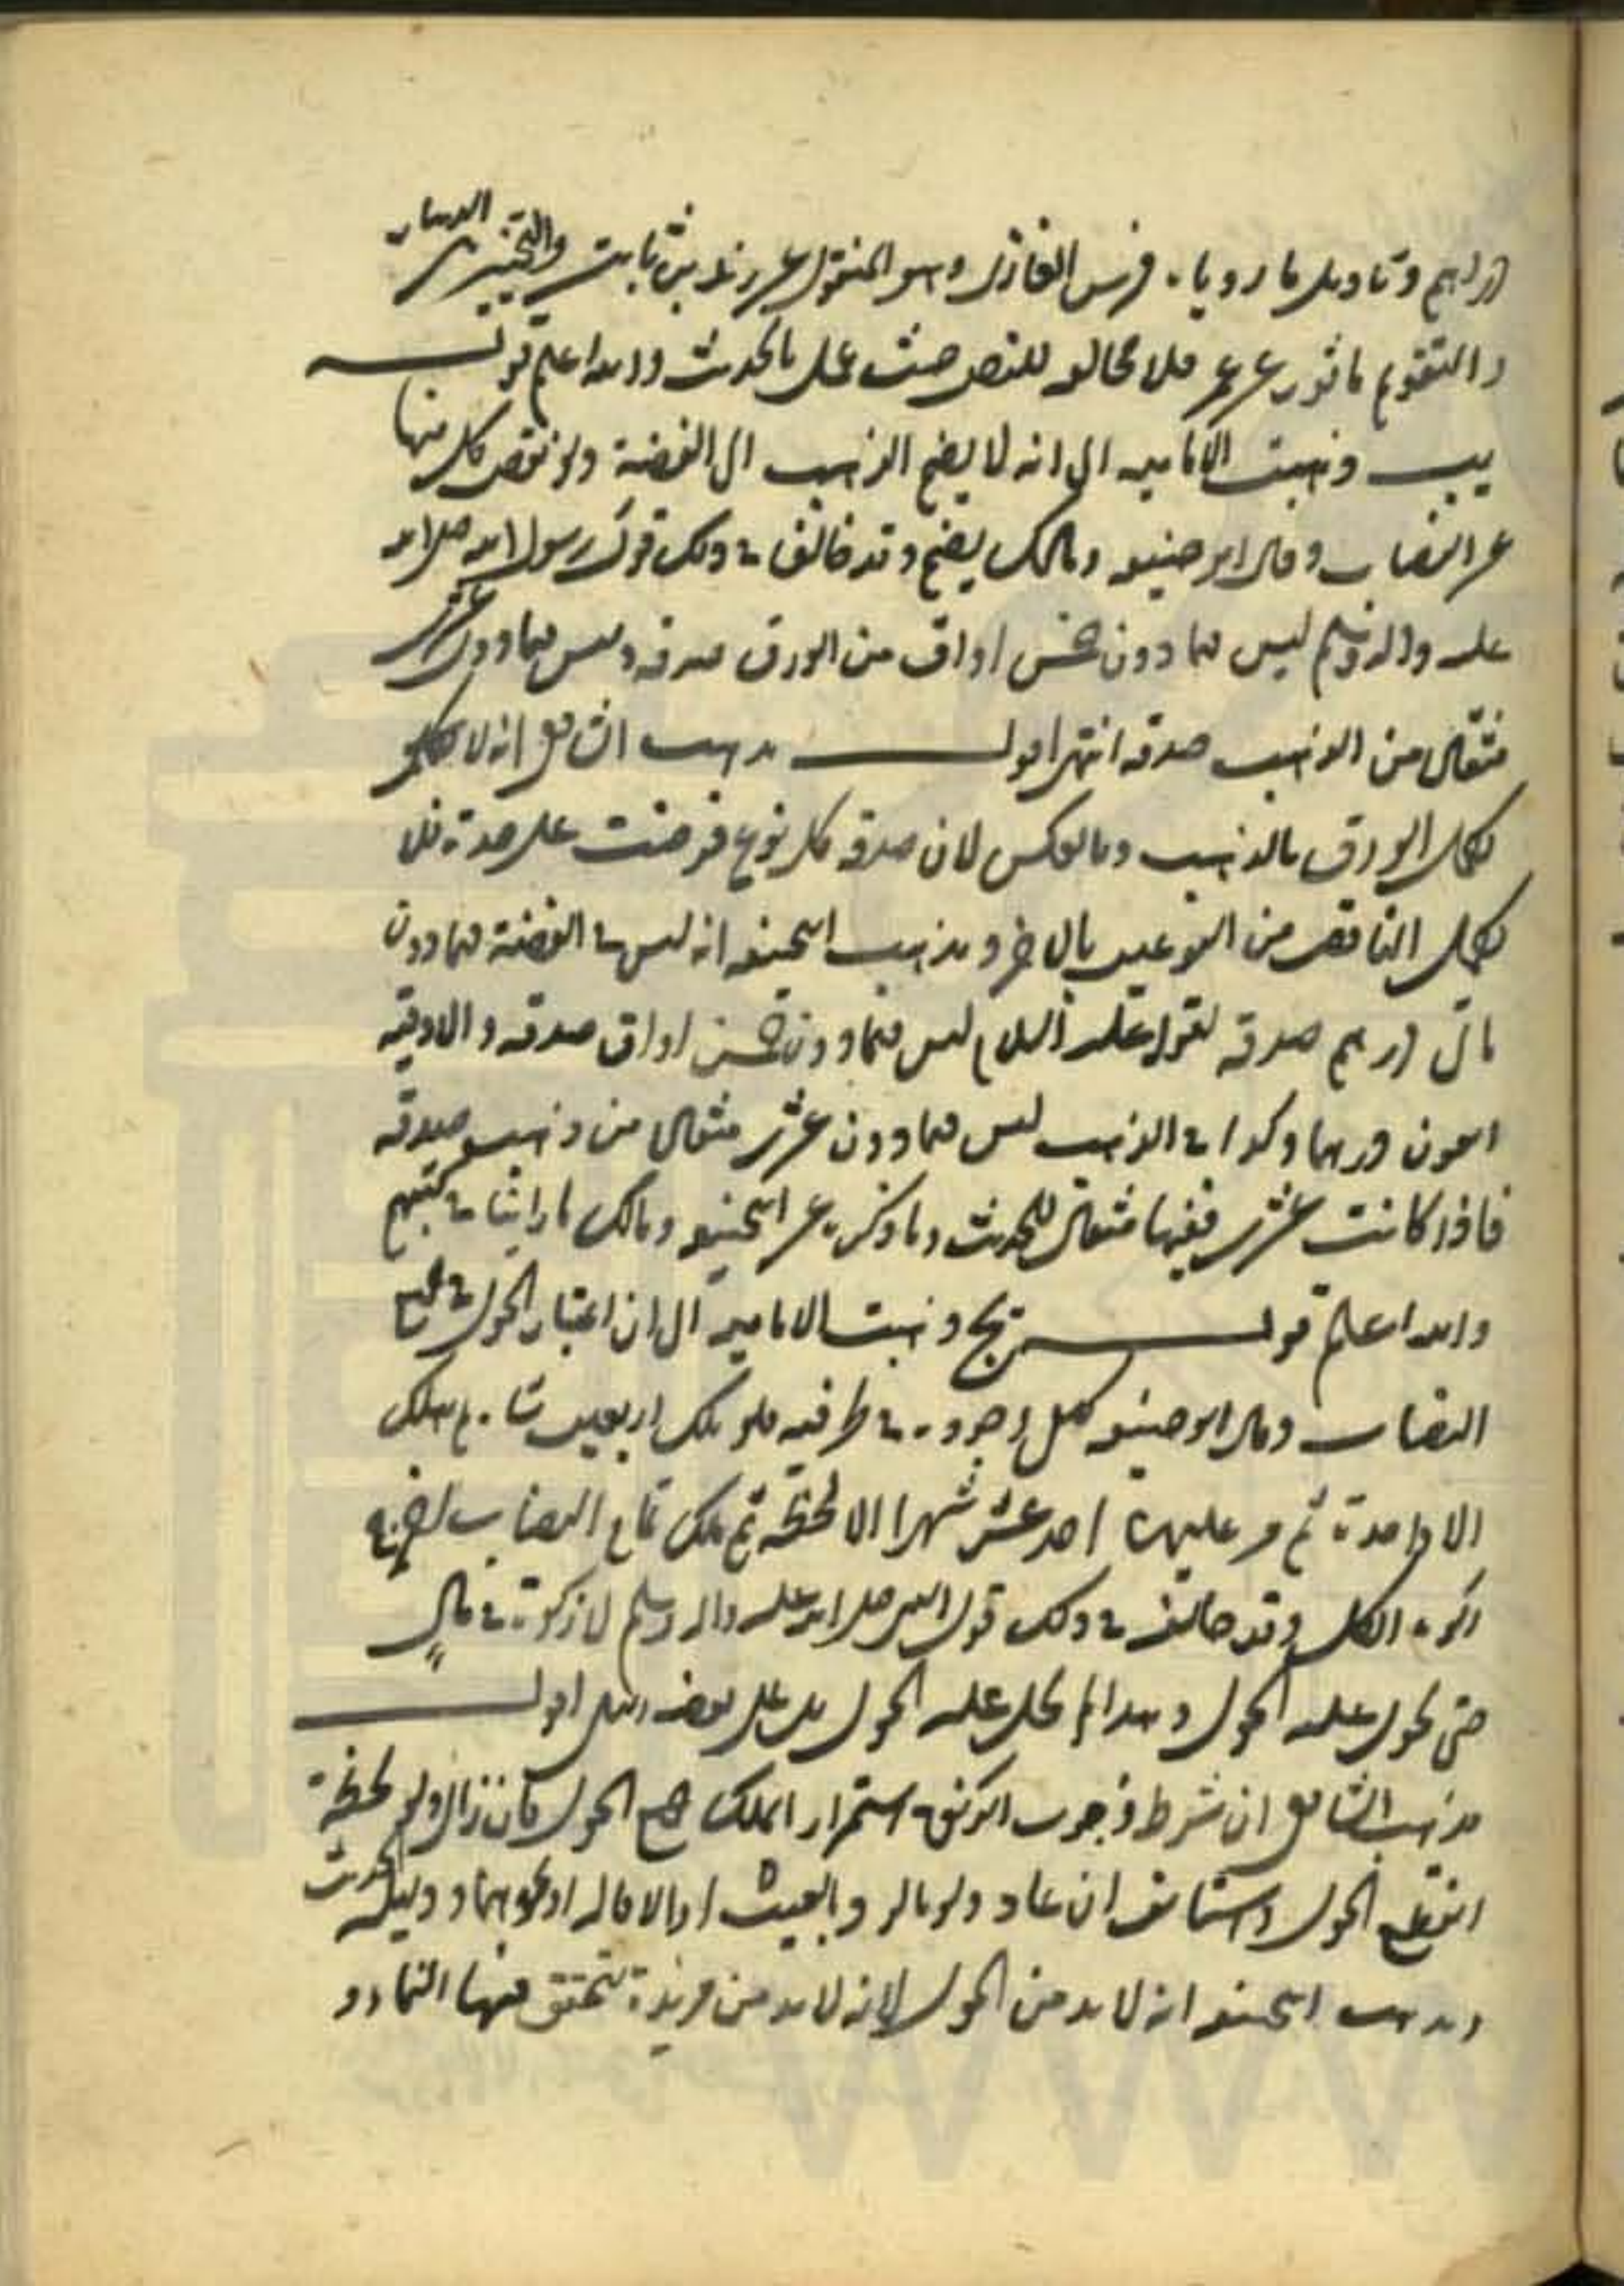 دراهم وتاويل ما روياه فرس الغازى وهو المنقول عن زيد بن ثابت والتخيير بين الدينار
والتقويم ماثور عن عمر فلا مخالف للنص حيث عمل بالحديث والله اعلم قوله
يب وذهبت الامامية الى انه لا يضم الذهب الى الفضة ولو نقص كل منهما
عن النصاب وقال ابو حنيفه ومالك يضم وقد خالفا في ذلك قول رسول الله صلى الله
عليه واله وسلم ليس فيما دون خمس اواق من الورق صدقه وليس فيما دون عشرين
مثقال من الذهب صدقه انتهى اقول مذهب الشافعى انه لا يكمل
بكمال الورق بالذهب وبالعكس لان صدقه كل نوع فرضت على حدة فلا
يكمل الناقص من النوعين بالاخر ومذهب ابيحنيفه انه ليس في الفضة فيما دون
ماتى درهم صدقه لقوله عليه السلام ليس فيما دون خمس اواق صدقه والاوقيه
اربعون درهما وكذا في الذهب ليس فيما دون عشرين مثقال من ذهب صدقه
فاذا كانت عشرين ففيها مثقال للحديث وما ذكره عن ابيحنيفه ومالك ما راينا في كتبهم
والله اعلم قوله يج ذهبت الامامية الى ان اعتبار الحول في جميع
النصاب وقال ابو حنيفه كل وجوده في طرفيه فلو ملك اربعين شاة ثم هلك
الا واحدة ثم مر عليها احد عشر شهرا الا لحظة ثم ملك تمام النصاب اخرج
زكوة الكل وقد خالف في ذلك قول النبى صلى الله عليه واله وسلم لا زكوة في مال
حتى يحول عليه الحول وهذا لم يحل عليه الحول بل على بعضه انتهى اقول
مذهب الشافعى ان شرط وجوب الزكوة استمرار الملك جميع الحول فان زال ولو لحظة
انقطع الحول واستانف ان عاد ولو بالرد بالعيب او الاقاله او نحوهما ودليله الحديث
ومذهب ابيحنيفه انه لا بد من الحول لانه لا بد من مدة يتحقق فيها النماء و